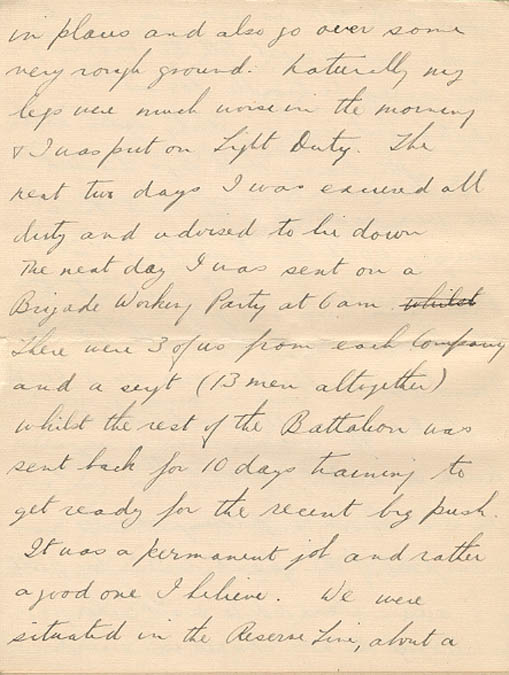 in places and also go over some
very rough ground. Naturally my
legs were much worse in the morning
& I was put on Light Duty. The
next two days I was excused all
duty and advised to lie down
The next day I was sent on a
Brigade Working Party at 6 am whilst
There were 3 of us from each Company
and a sergt (13 men altogether)
whilst the rest of the Battalion was
sent back for 10 days training to
get ready for the recent big push.
It was a permanent job and rather
a good one I believe. We were
situated in the Reserve Line, about a